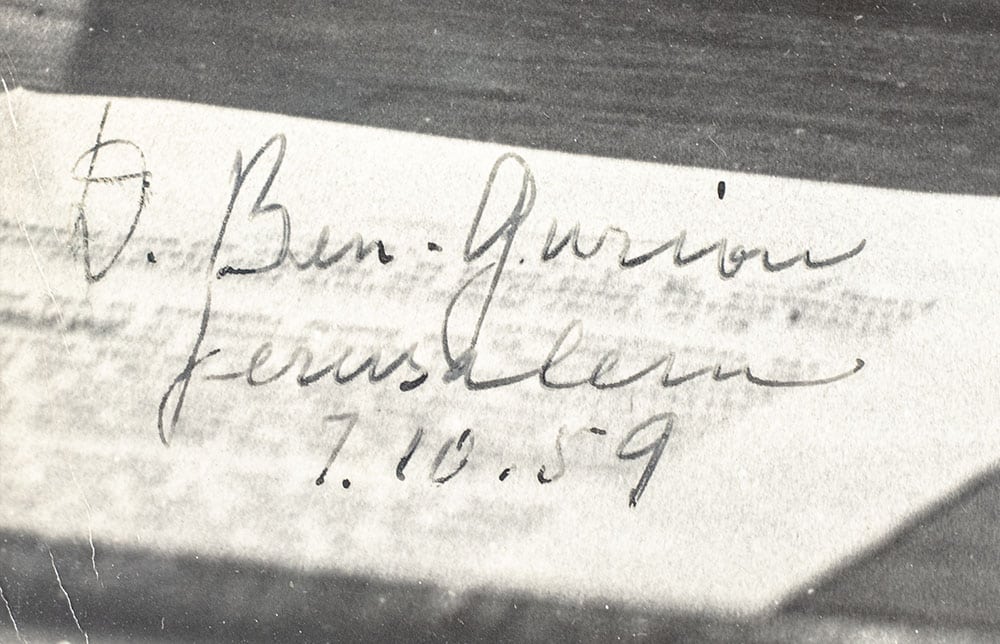 D. Ben-Gurion
Jerusalem
7.10.59